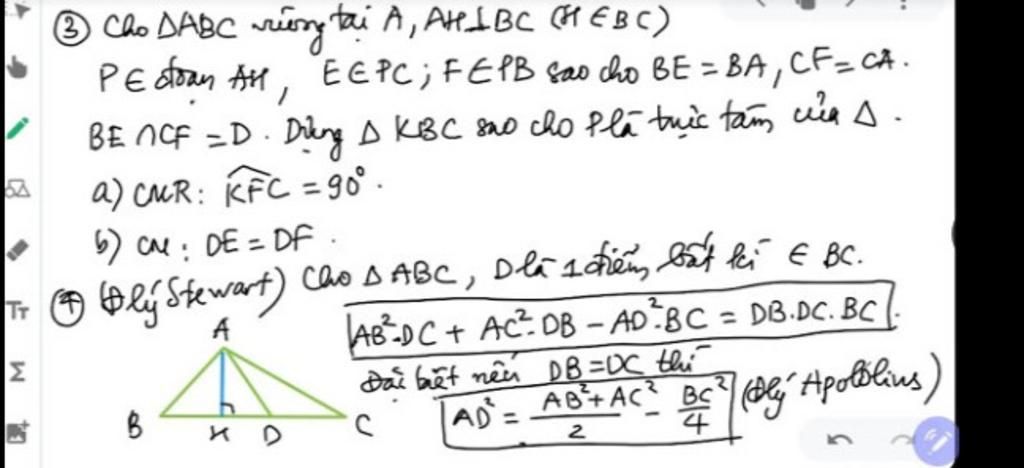 ③ Cho ΔABC vuông tại A, AH⊥BC (H ∈ BC)
P ∈ đoạn AH, E ∈ PC; F ∈ PB sao cho BE = BA, CF = CA.
BE ∩ CF = D. Dựng Δ KBC sao cho P là trực tâm của Δ.
a) CMR: \widehat{KFC} = 90°.
b) CM: DE = DF.
④ (Đlý Stewart) Cho Δ ABC, D là 1 điểm bất kì ∈ BC.
AB².DC + AC².DB − AD².BC = DB.DC.BC.
Đặc biệt nếu DB = DC thì
AD² = \frac{AB² + AC²}{2} − \frac{BC²}{4} (Đlý Apollolius)
A
B H D C
Tт
Σ